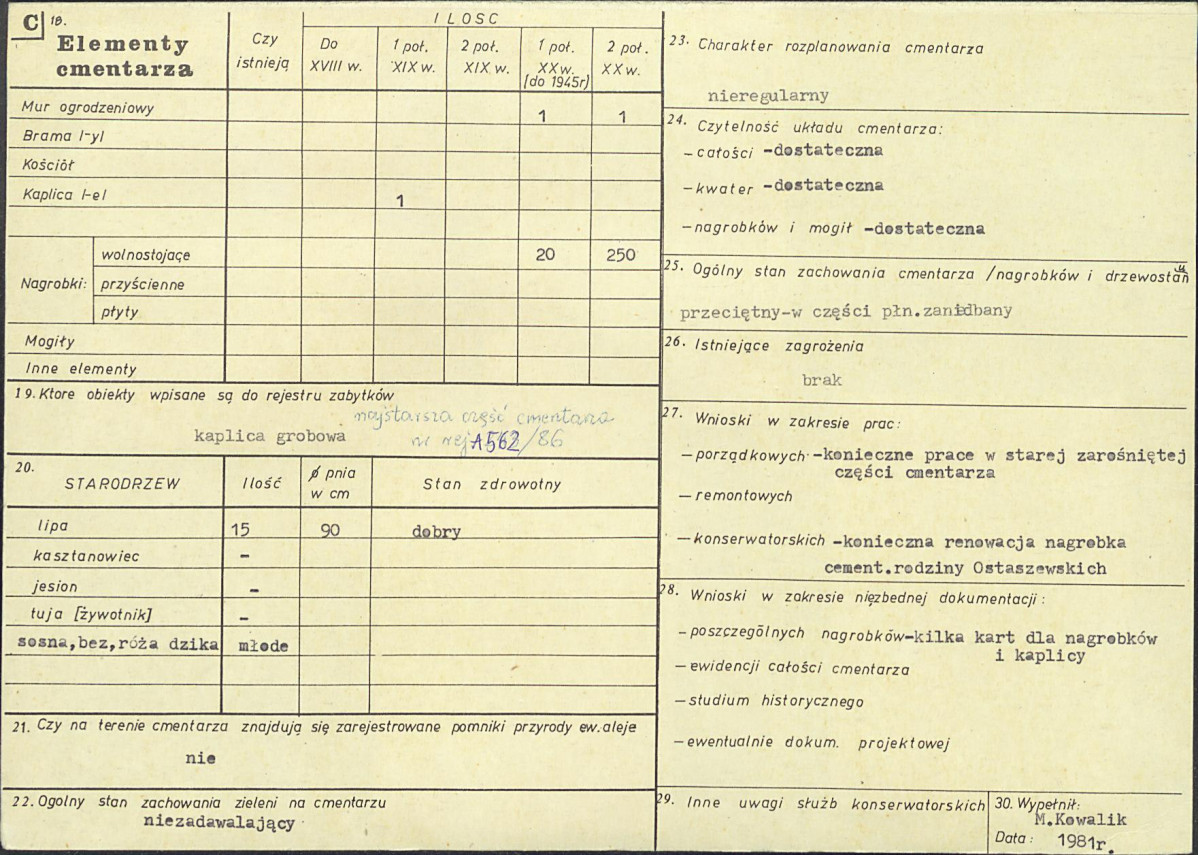 C 18.
Elementy cmentarza
Czy istnieją
ILOSC
Do XVIII w.
1 poł. XIX w.
2 poł. XIX w.
1 poł. XX w. (do 1945r)
2 poł. XX w.
Mur ogrodzeniowy 1 1
Brama /-y/
Kościół
Kaplica /-e/ 1
Nagrobki:
wolnostojące 20 250
przyścienne
płyty
Mogiły
Inne elementy
19. Ktore obiekty wpisane są do rejestru zabytków
najstarsza część cmentarza
kaplica grobowa nr rej A562/86
20.
STARODRZEW Ilość ∅ pnia w cm Stan zdrowotny
lipa 15 90 dobry
kasztanowiec -
jesion -
tuja [żywotnik] -
sosna,bez,róża dzika młode
21. Czy na terenie cmentarza znajdują się zarejestrowane pomniki przyrody ew. aleje
nie
22. Ogolny stan zachowania zieleni na cmentarzu
niezadawalający
23. Charakter rozplanowania cmentarza
nieregularny
24. Czytelność układu cmentarza:
- całości -dostateczna
- kwater -dostateczna
- nagrobków i mogił -dostateczna
25. Ogólny stan zachowania cmentarza /nagrobków i drzewostanu
przeciętny-w części płn.zaniedbany
26. Istniejące zagrożenia
brak
27. Wnioski w zakresie prac:
- porządkowych -konieczne prace w starej zarośniętej
części cmentarza
- remontowych
- konserwatorskich -konieczna renowacja nagrobka
cement.rodziny Ostaszewskich
28. Wnioski w zakresie nięzbednej dokumentacji:
- poszczególnych nagrobków-kilka kart dla nagrobków
i kaplicy
- ewidencji całości cmentarza
- studium historycznego
- ewentualnie dokum. projektowej
29. Inne uwagi służb konserwatorskich
30. Wypełnił:
M.Kowalik
Data: 1981r.